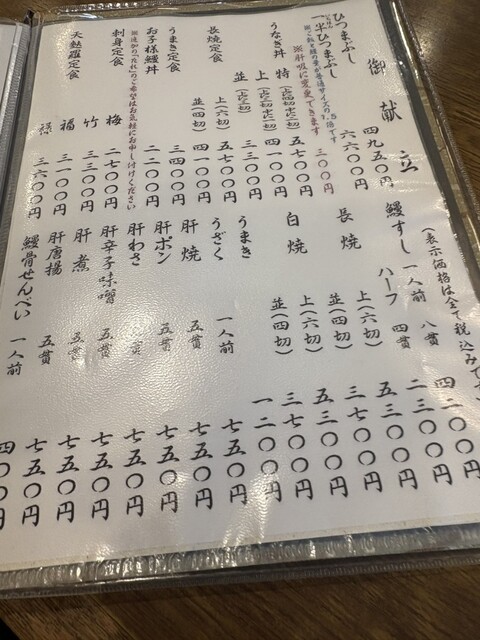 御献立
(表示価格は全て税込みです
ひつまぶし 四九五〇円
一.半ひつまぶし 六六〇〇円
※ご飯と鰻の量が普通サイズの1.5倍です
※肝吸に変更できます 三〇〇円
うなぎ丼 特(上に四切 下に二切) 五七〇〇円
上(上に三切 下に一切) 四一〇〇円
並(上に三切) 三三〇〇円
長焼定食 上(六切) 五七〇〇円
並(四切) 四一〇〇円
うまき定食 三四〇〇円
お子様鰻丼 二二〇〇円
※追加の「たれ」のご希望はお気軽にお申し付けください
刺身定食 梅 二七〇〇円
竹 三二〇〇円
天麩羅定食 福 三一〇〇円
禄 三六〇〇円
鰻すし 一人前 八貫 四二〇〇円
ハーフ 四貫 二三〇〇円
長焼 上(六切) 五三〇〇円
並(四切) 三七〇〇円
白焼 上(六切) 五三〇〇円
並(四切) 三七〇〇円
うまき 一二〇〇円
うざく 一人前 七五〇円
肝焼 五貫 七五〇円
肝ポン 五貫 七五〇円
肝わさ 五貫 七五〇円
肝辛子味噌 五貫 七五〇円
肝煮 五貫 七五〇円
肝唐揚 五貫 七五〇円
鰻骨せんべい 一人前 四〇〇円